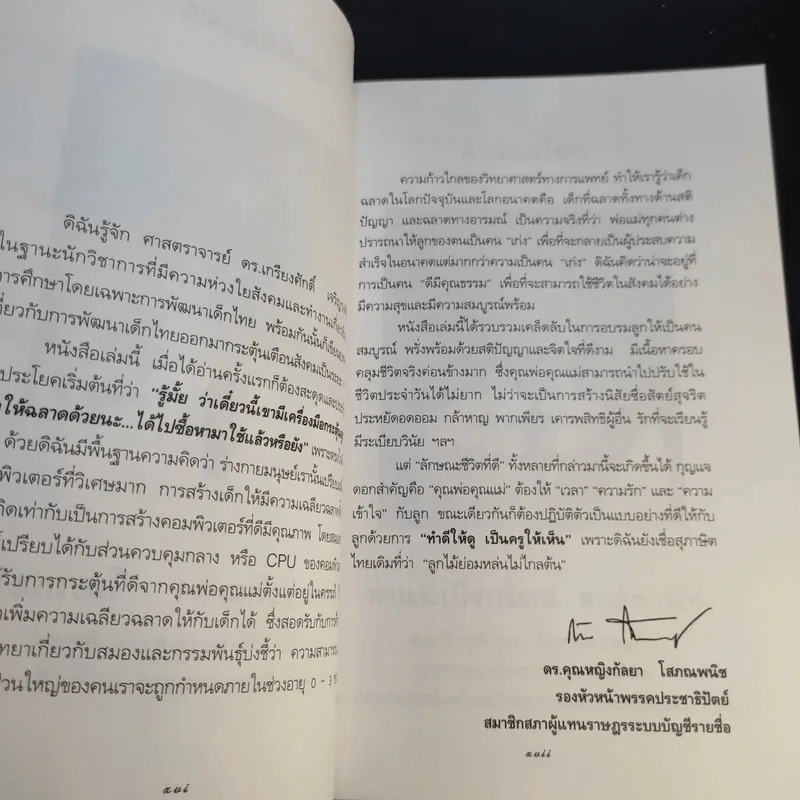 ดิฉันรู้จัก ศาสตราจารย์ ดร.เกรียงศักดิ์
ในฐานะนักวิชาการที่มีความห่วงใยสังคมและทำงานเกี่ยวกับ
การศึกษาโดยเฉพาะการพัฒนาเด็กไทย พร้อมกันนั้นก็เขียน
เกี่ยวกับการพัฒนาเด็กไทยออกมากระตุ้นเตือนสังคมเป็นระยะ
หนังสือเล่มนี้ เมื่อได้อ่านครั้งแรกก็ต้องสะดุดและ
ประโยคเริ่มต้นที่ว่า "รู้มั้ย ว่าเดี๋ยวนี้เขามีเครื่องมือกระตุ้น
ให้ฉลาดด้วยนะ...ได้ไปซื้อหามาใช้แล้วหรือยัง" เพราะ
ด้วยดิฉันมีพื้นฐานความคิดว่า ร่างกายมนุษย์เรานั้นเปรียบ
พิวเตอร์ที่วิเศษมาก การสร้างเด็กให้มีความเฉลียวฉลาด
เท่ากับเป็นการสร้างคอมพิวเตอร์ที่ดีมีคุณภาพ โดย
เปรียบได้กับส่วนควบคุมกลาง หรือ CPU ของคอม
รับการกระตุ้นที่ดีจากคุณพ่อคุณแม่ตั้งแต่อยู่ในครรภ์
เพิ่มความเฉลียวฉลาดให้กับเด็กได้ ซึ่งสอดรับกับการ
ทยาเกี่ยวกับสมองและกรรมพันธุ์บ่งชี้ว่า ความสามารถ
ส่วนใหญ่ของคนเราจะถูกกำหนดภายในช่วงอายุ 0 - 3
xvi
ความก้าวไกลของวิทยาศาสตร์ทางการแพทย์ ทำให้เรารู้ว่าเด็ก
ฉลาดในโลกปัจจุบันและโลกอนาคตคือ เด็กที่ฉลาดทั้งทางด้านสติ
ปัญญา และฉลาดทางอารมณ์ เป็นความจริงที่ว่า พ่อแม่ทุกคนต่าง
ปรารถนาให้ลูกของตนเป็นคน "เก่ง" เพื่อที่จะกลายเป็นผู้ประสบความ
สำเร็จในอนาคตแต่มากกว่าความเป็นคน "เก่ง" ดิฉันคิดว่าน่าจะอยู่ที่
การเป็นคน "ดีมีคุณธรรม" เพื่อที่จะสามารถใช้ชีวิตในสังคมได้อย่าง
มีความสุขและมีความสมบูรณ์พร้อม
หนังสือเล่มนี้ได้รวบรวมเคล็ดลับในการอบรมลูกให้เป็นคน
สมบูรณ์ พรั่งพร้อมด้วยสติปัญญาและจิตใจที่ดีงาม มีเนื้อหาครอบ
คลุมชีวิตจริงค่อนข้างมาก ซึ่งคุณพ่อคุณแม่สามารถนำไปปรับใช้ใน
ชีวิตประจำวันได้ไม่ยาก ไม่ว่าจะเป็นการสร้างนิสัยซื่อสัตย์สุจริต
ประหยัดอดออม กล้าหาญ พากเพียร เคารพสิทธิผู้อื่น รักที่จะเรียนรู้
มีระเบียบวินัย ฯลฯ
แต่ "ลักษณะชีวิตที่ดี" ทั้งหลายที่กล่าวมานี้จะเกิดขึ้นได้ กุญแจ
ดอกสำคัญคือ "คุณพ่อคุณแม่" ต้องให้ "เวลา" "ความรัก" และ "ความ
เข้าใจ" กับลูก ขณะเดียวกันก็ต้องปฏิบัติตัวเป็นแบบอย่างที่ดีให้กับ
ลูกด้วยการ "ทำดีให้ดู เป็นครูให้เห็น" เพราะดิฉันยังเชื่อสุภาษิต
ไทยเดิมที่ว่า "ลูกไม้ย่อมหล่นไม่ไกลต้น"
ดร.คุณหญิงกัลยา โสภณพนิช
รองหัวหน้าพรรคประชาธิปัตย์
สมาชิกสภาผู้แทนราษฎรระบบบัญชีรายชื่อ
xvii